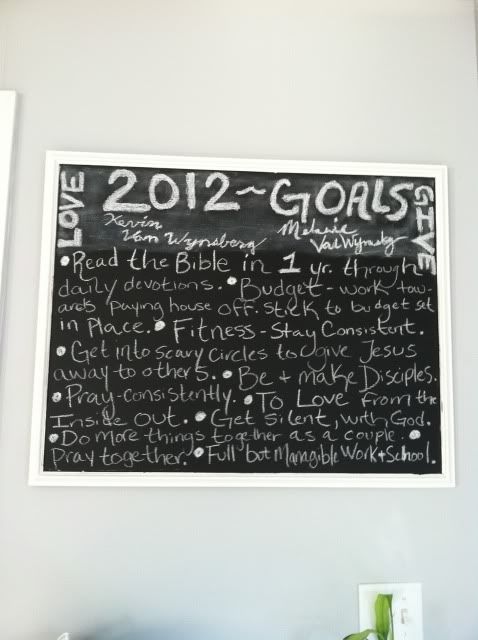 LOVE
2012~GOALS
GIVE
Kevin Van Wynsberg
Melanie
• Read the Bible in 1 yr. through
daily devotions. • Budget - work tow-
ards paying house off. stick to budget set
in place. • Fitness - Stay Consistent.
• Get into scary circles to give Jesus
away to others. • Be + make Disciples.
• Pray - consistently. • To Love from the
Inside Out. • Get Silent, with God.
• Do more things together as a couple. •
Pray together. • Full but Managible Work + School.